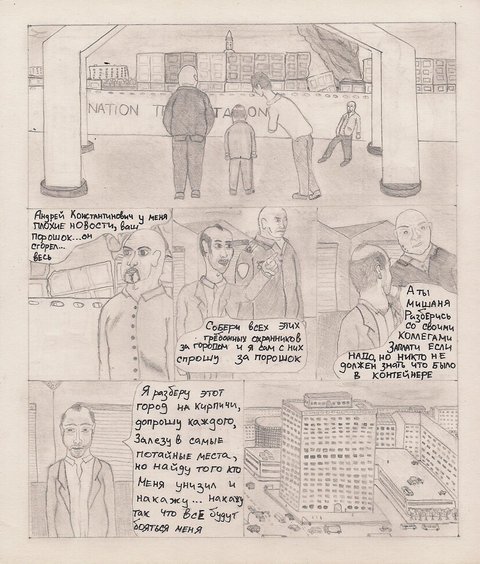 NATION T
TATION
Андрей Константинович у меня
плохие новости, ваш
порошок...он
сгорел...
весь
Собери всех этих
гребанных охранников
за городом и я сам с них
спрошу за порошок
А ты
Мишаня
Разберись
со своими
коллегами
Заплати если
надо, но никто не
должен знать что было
в контейнере
Я разберу этот
город на кирпичи,
допрошу каждого,
Залезу в самые
потайные места,
но найду того кто
меня унизил и
накажу... накажу
так что все будут
бояться меня